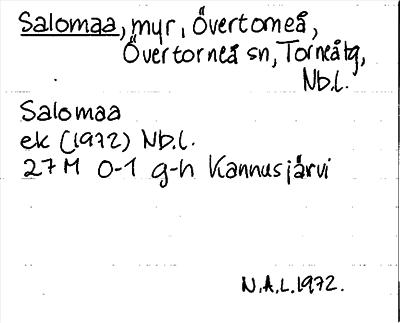 Salomaa, myr, Övertorneå,
Övertorneå sn, Torneåtg,
Nb.l.
Salomaa
ek (1972) Nb.l.
27M 0-1 g-h Kannusjärvi
N.A.L.1972.